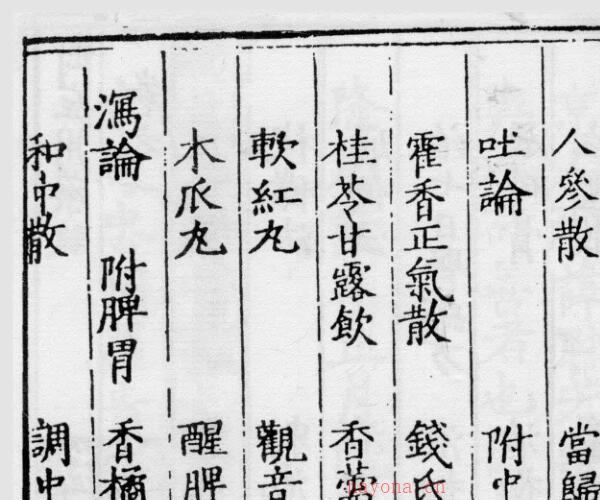 人參散　當歸
吐論　附中
霍香正氣散　錢氏
桂苓甘露飲　香
軟紅丸　觀音
木瓜丸　醒脾
瀉論　附脾胃　香橘
和中散　調中
nayona.cn